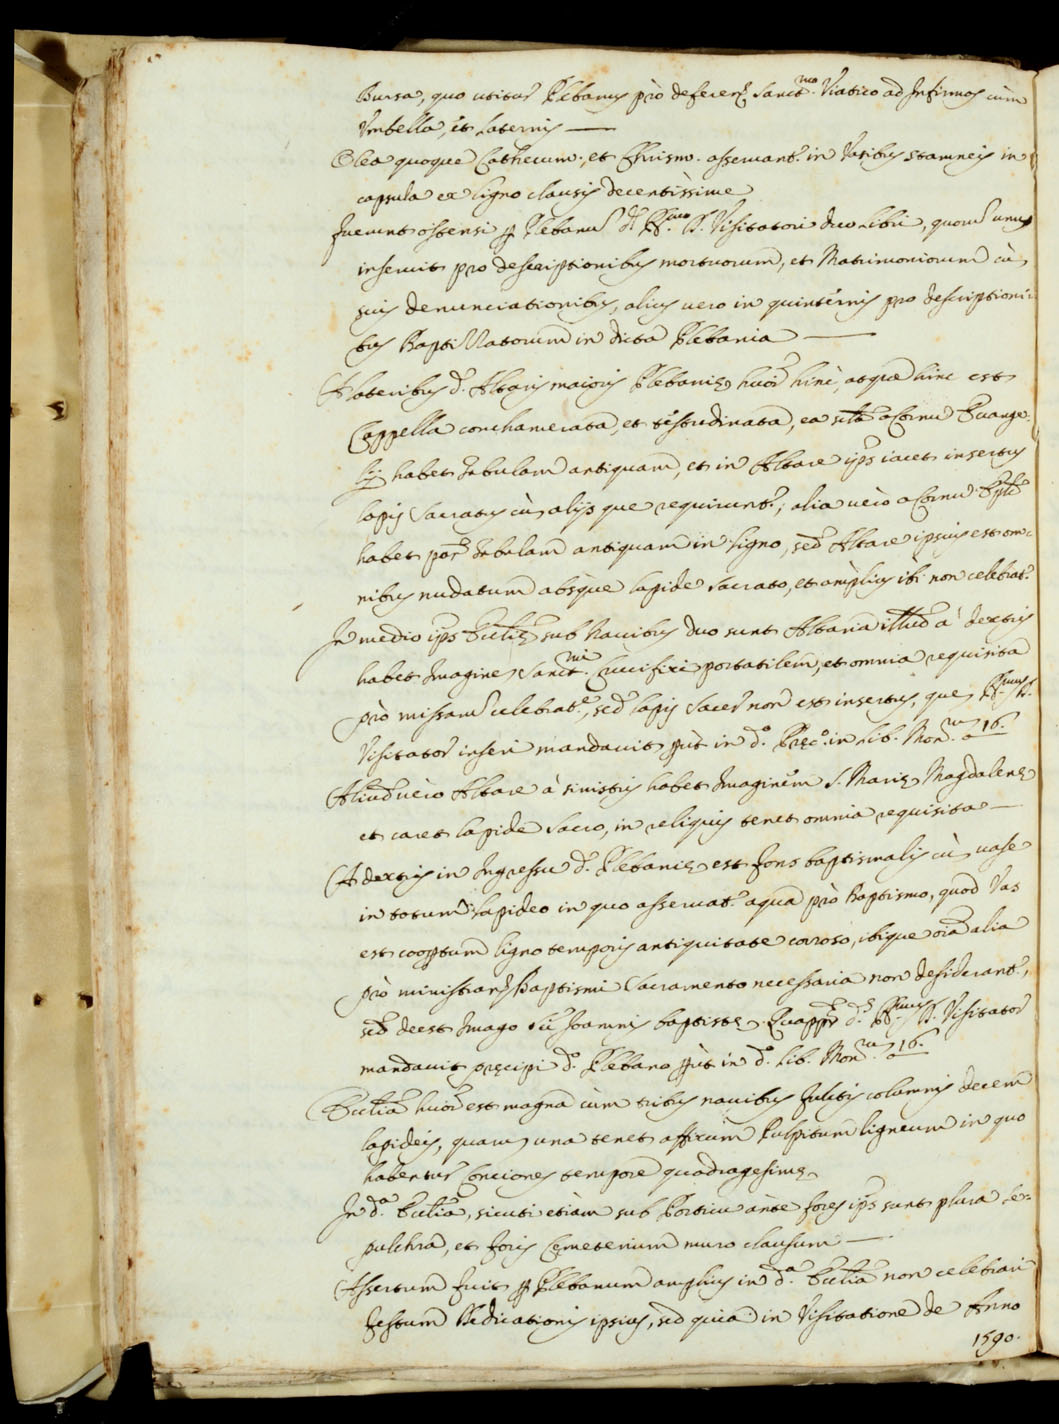 Bursa, quo utitur Plebanus prò deferen. Sanct.mo Viatico ad Infirmos cùm
Umbella, et Laternis —
Olea quoque Cathecum. et Chrism. asseruant.r in Vasibus stamneis in
capsula ex ligno clausis decentissime
Fuerunt ostensi p Plebanu d. R.mo D. Visitatori duo Libri, quoru unus
inseruit pro descriptionibus mortuorum, et Matrimoniorum cù
suis denunciationibus, alius uero in quinternis pro descriptioni-
bus Baptizatorum in dicta Plebania —
A lateribus d. Altaris maioris Plebanie huoi hinc, atque hinc est
Cappella conchamerata, et testudinata, ea sita a Cornu Euange-
lij habet Tabulam antiquam, et in Altare ips iacet insertus
lapis Sacratus cù alijs que requirunt.r; alia uerò a Cornu Eple
habet par Tabulam antiquam in ligno, sed Altare ipsius est om-
nibus nudatum absque lapide sacrato, et ampliùs ibi non celebrat.r
In medio ips Ecclie sub Nauibus duo sunt Altaria illud à dextris
habet Imagine Sanct.mi Crucifixi portatilem, et omnia requisita
prò missaru celebrat.e, sed lapis sacer non est insertus, que R.mus D.
Visitator inseri mandauit put in d.o Prec.o in Lib. Mon.ru a 16.
Aliud uerò Altare à sinistris habet Imaginem S. Marie Magdalene
et caret lapide sacro, in reliquis tenet omnia requisita —
A dextris in Ingressu d. Plebanie est fons baptismalis cù uase
in totum lapideo in quo asseruat.r aqua prò Baptismo, quod Vas
est coopertum ligno temporis antiquitate corroso, ibique oia alia
prò ministran. Baptismi Sacramento necessaria non desiderant.r,
sed deest Imago Sti Joannis baptiste. Quappe d.s R.mus D. Visitator
mandauit precipi d.o Plebano put in d.o lib. Mon.ru a 16.
Ecclia huoi est magna cùm tribus nauibus fulitis columnis decem
lapideis, quaru una tenet affixùm Pulpitum ligneum in quo
habentur Conciones tempore quadragesime
In d.a Ecclia, sicuti etiàm sub Porticu ante fores ips sunt plura se-
pulchra, et foris Cemeterium muro clausum —
Assertum fuit p Plebanum amplius in d.a Ecclia non celebrari
festum Dedicationis ipsius, sed quia in Visitatione de Anno
1590.